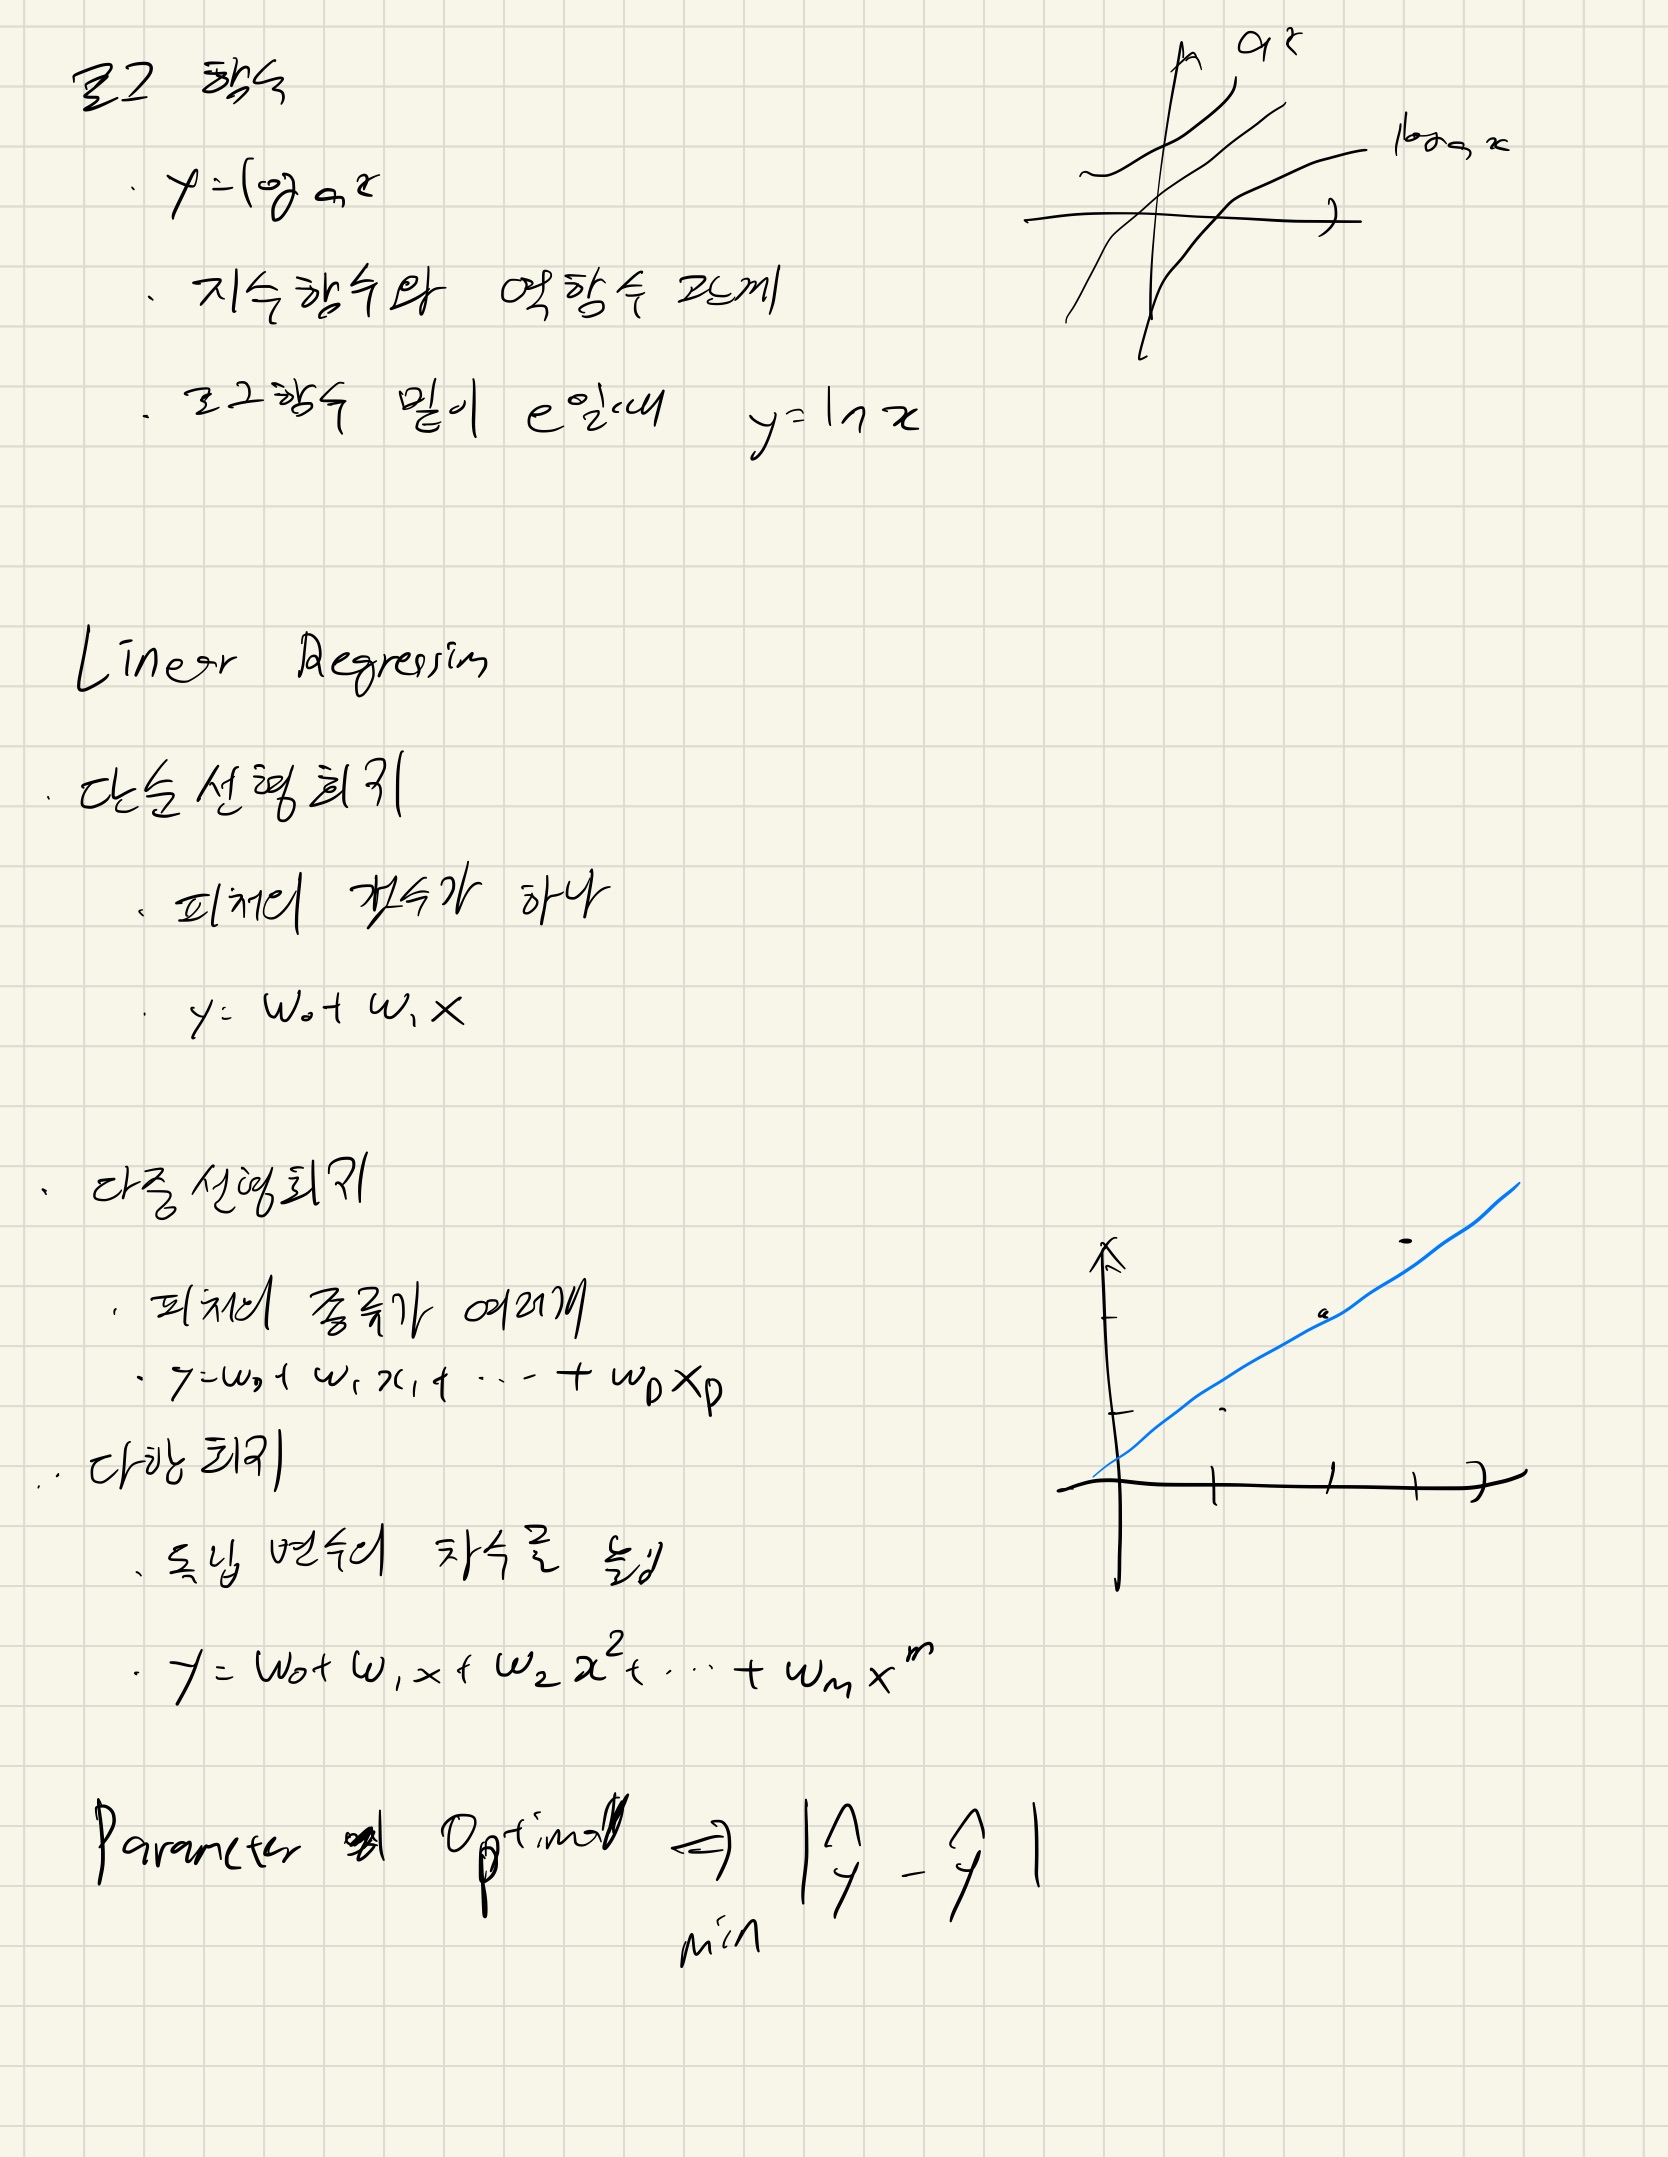 로그 함수
a^x
log_a x
· y = log_a x
· 지수함수와 역함수 관계
· 로그함수 밑이 e일때 y = ln x
Linear Regression
· 단순선형회귀
· 피처의 갯수가 하나
· y = w₀ + w₁x
· 다중선형회귀
· 피처의 종류가 여러개
· y = w₀ + w₁x₁ + ··· + w_p x_p
· 다항회귀
· 독립 변수의 차수를 높임
· y = w₀ + w₁x + w₂x² + ··· + w_m x^m
Parameter Optimal ⇔ | ŷ - ŷ |
min